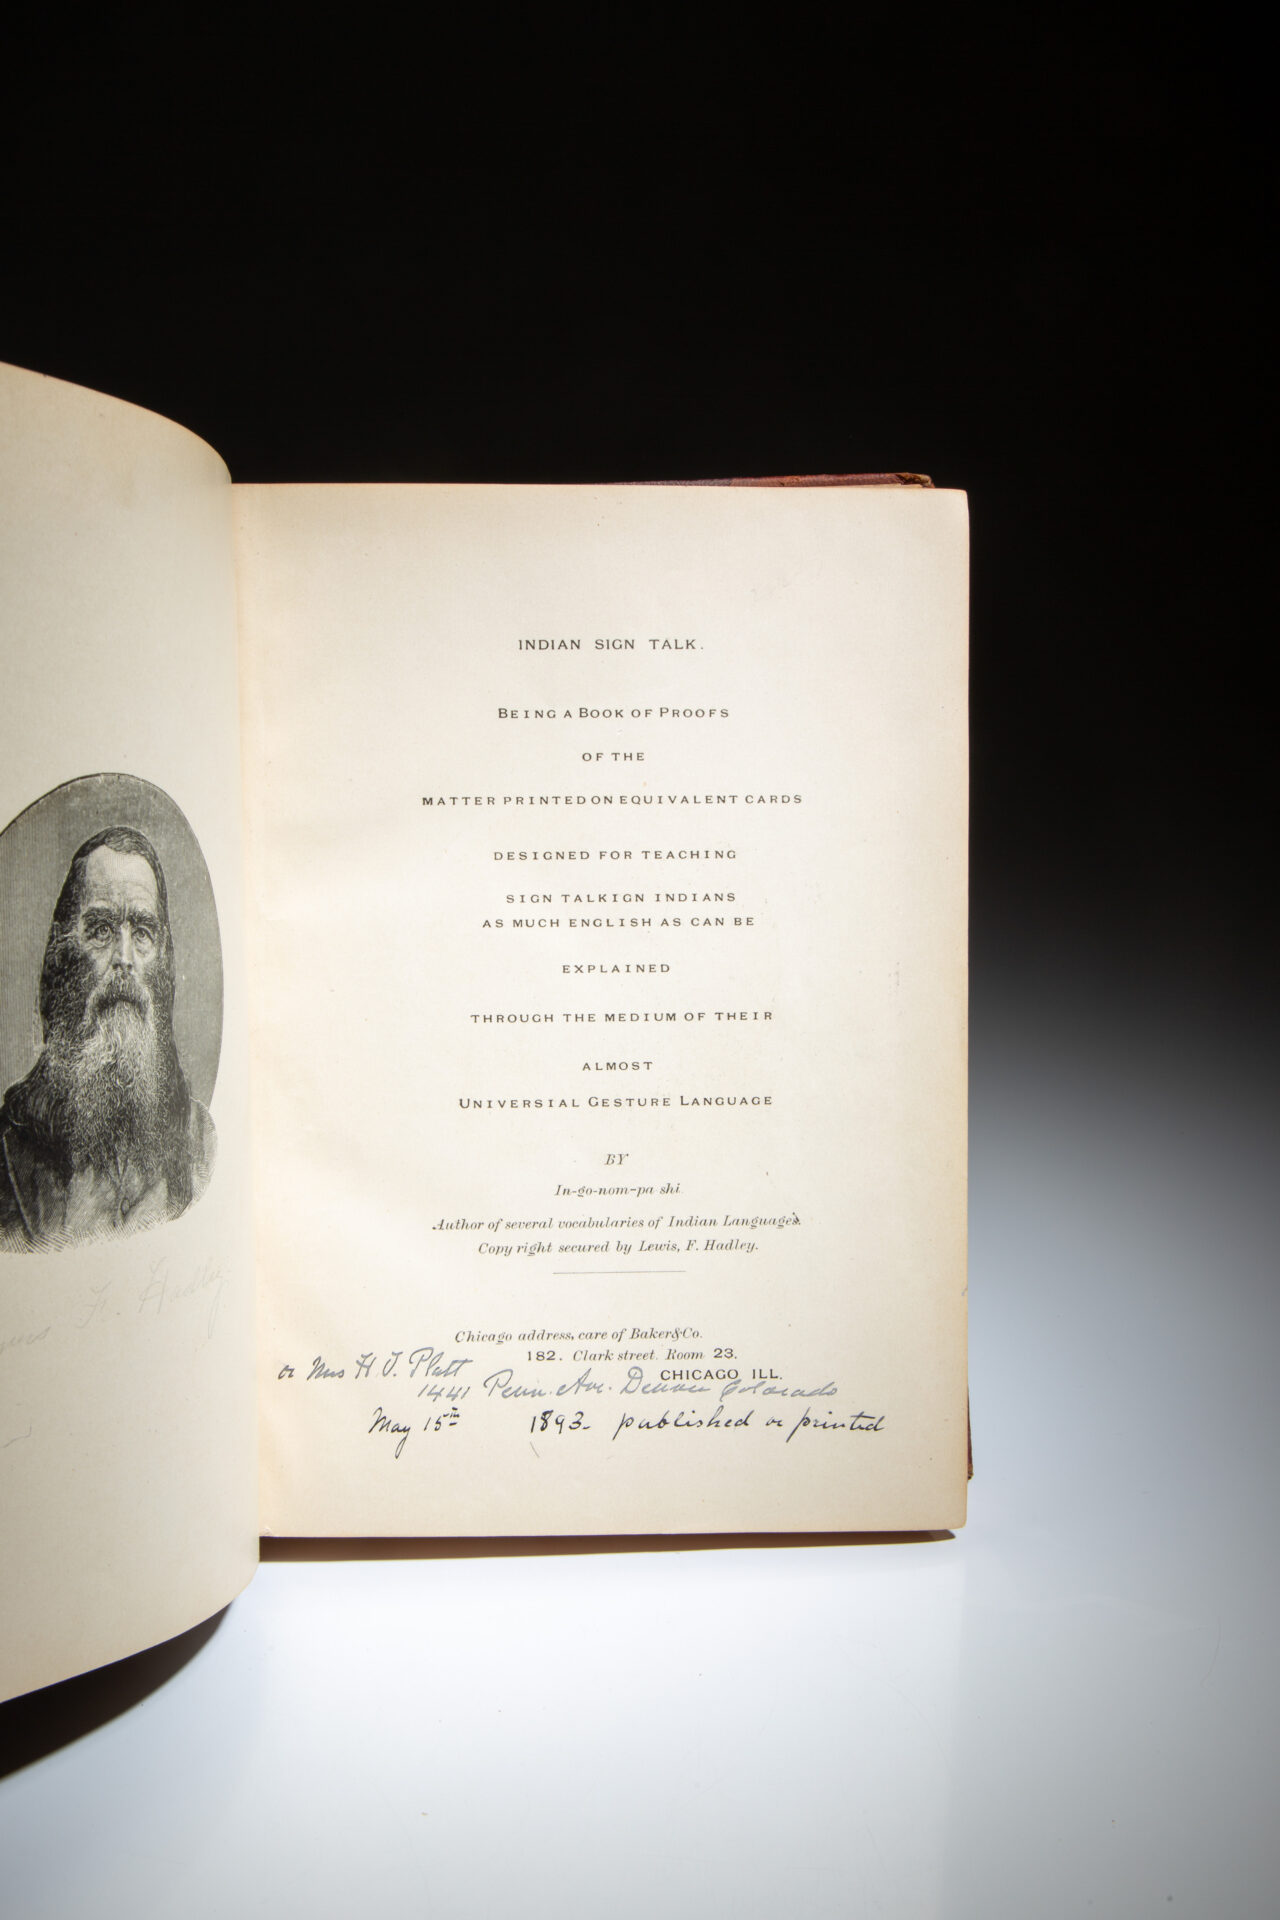 F. Hadley
INDIAN SIGN TALK.
BEING A BOOK OF PROOFS
OF THE
MATTER PRINTED ON EQUIVALENT CARDS
DESIGNED FOR TEACHING
SIGN TALKIGN INDIANS
AS MUCH ENGLISH AS CAN BE
EXPLAINED
THROUGH THE MEDIUM OF THEIR
ALMOST
UNIVERSIAL GESTURE LANGUAGE
BY
In-go-nom-pa shi.
Author of several vocabularies of Indian Languages.
Copy right secured by Lewis, F. Hadley.
Chicago address, care of Baker&Co.
182. Clark street. Room 23.
CHICAGO ILL.
or Mrs H J. Platt
1441 Penn. Ave. Denver Colorado
May 15th 1893- published or printed